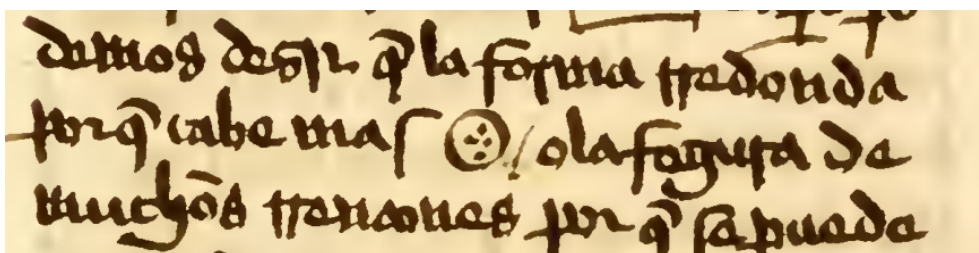 demos desir q̃ la forma rredonda
por q̃ cabe mas / o la fogura de
muchõs rrencones por q̃ se puede